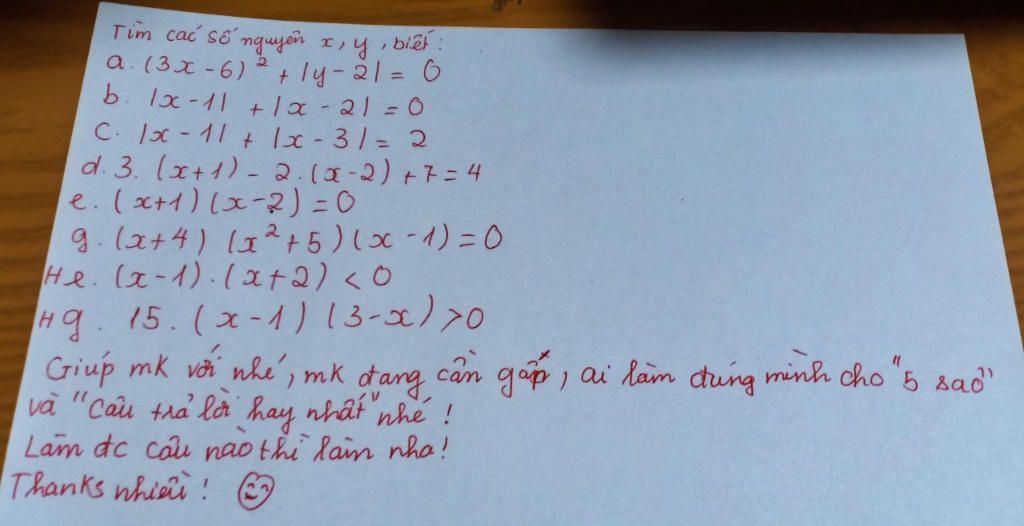 Tìm các số nguyên x, y, biết:
a. (3x - 6)² + |y - 2| = 0
b. |x - 1| + |x - 2| = 0
c. |x - 1| + |x - 3| = 2
d. 3. (x+1) - 2. (x-2) + 7 = 4
e. (x+1) (x-2) = 0
g. (x+4) (x² + 5) (x - 1) = 0
He. (x-1) . (x+2) < 0
Hg. 15. (x-1) (3-x) > 0
Giúp mk với nhé, mk đang cần gấp, ai làm đúng mình cho "5 sao"
và "Câu trả lời hay nhất" nhé!
Làm đc câu nào thì làm nha!
Thanks nhiều!